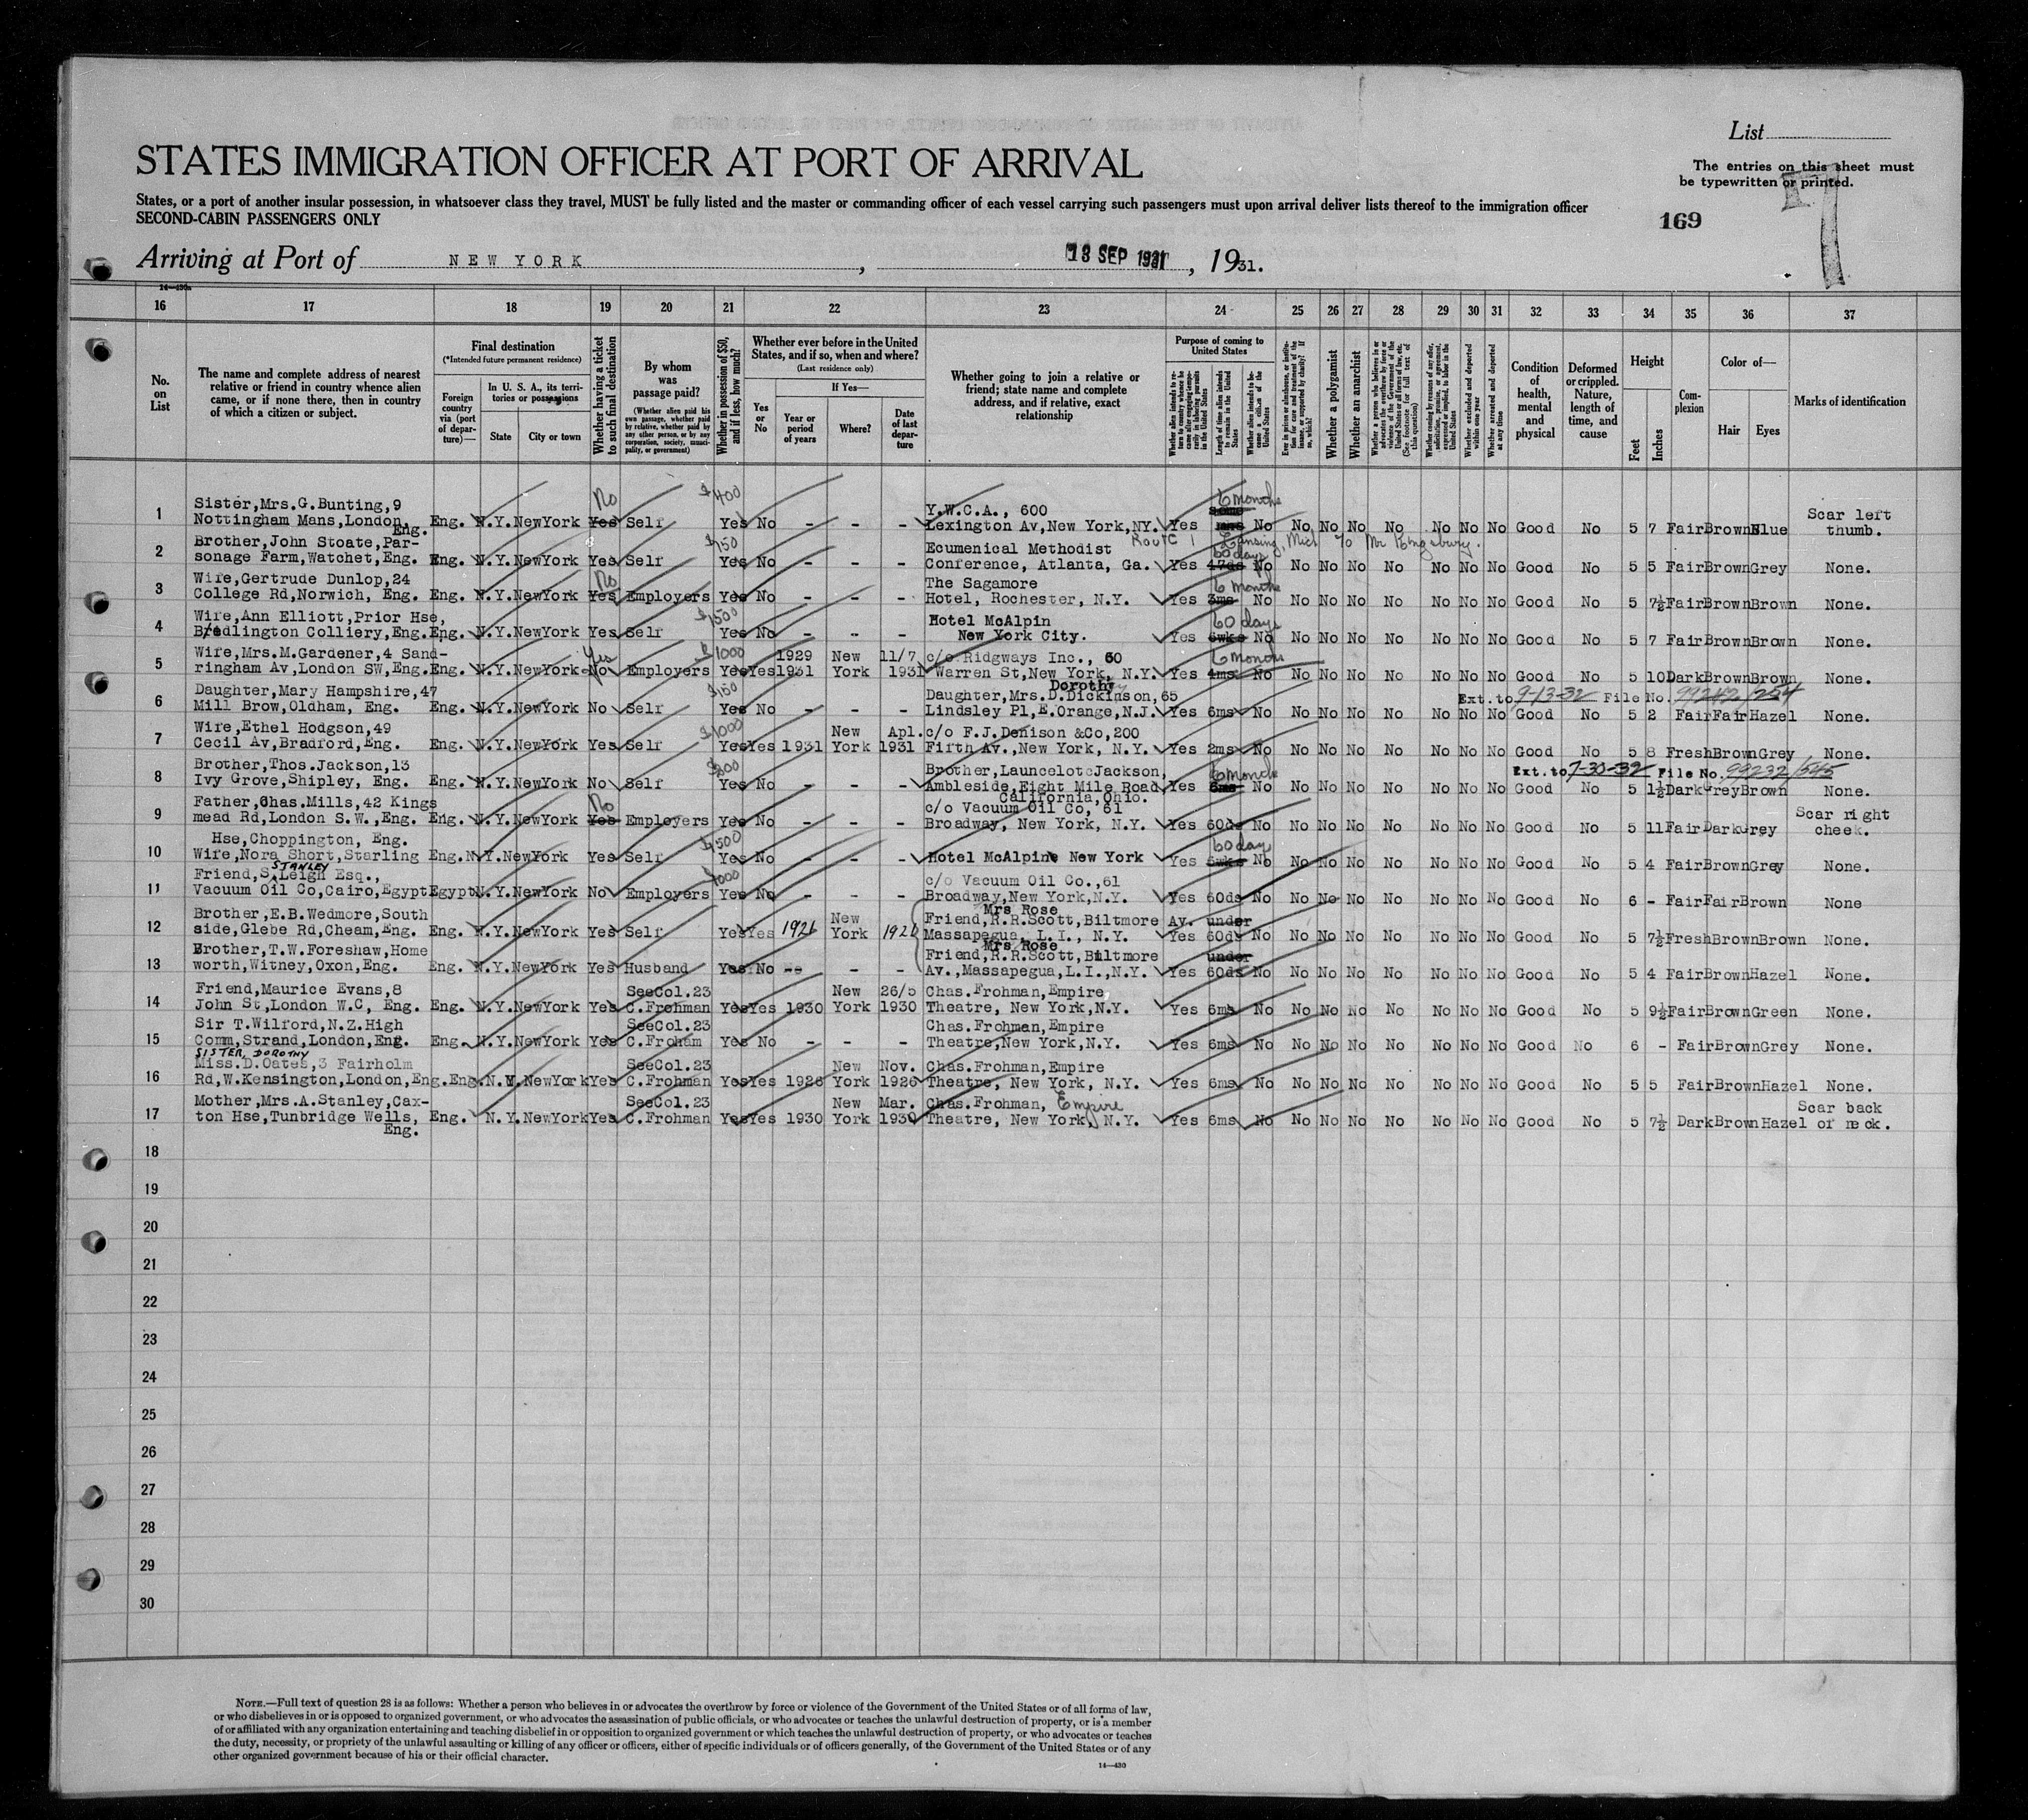 List
STATES IMMIGRATION OFFICER AT PORT OF ARRIVAL
The entries on this sheet must
be typewritten or printed.
States, or a port of another insular possession, in whatsoever class they travel, MUST be fully listed and the master or commanding officer of each vessel carrying such passengers must upon arrival deliver lists thereof to the immigration officer
SECOND-CABIN PASSENGERS ONLY
169
Arriving at Port of NEW YORK, 13 SEP 1931, 1931.
14—430
16 17 18 19 20 21 22 23 24 25 26 27 28 29 30 31 32 33 34 35 36 37
No. on List
The name and complete address of nearest relative or friend in country whence alien came, or if none there, then in country of which a citizen or subject.
Final destination
(*Intended future permanent residence)
Foreign country via (port of departure)—
In U. S. A., its territories or possessions
State
City or town
Whether having a ticket to such final destination
By whom was passage paid?
(Whether alien paid his own passage, whether paid by relative, whether paid by any other person, or by any corporation, society, municipality, or government)
Whether in possession of $50, and if less, how much?
Whether ever before in the United States, and if so, when and where?
(Last residence only)
Yes or No
If Yes—
Year or period of years
Where?
Date of last departure
Whether going to join a relative or friend; state name and complete address, and if relative, exact relationship
Purpose of coming to United States
Length of time alien intends to remain in the United States
Whether alien intends to become a citizen of the United States
Whether a polygamist
Whether an anarchist
(See footnote for full text of this question)
Whether excluded and deported within one year
Whether arrested and deported at any time
Condition of health, mental and physical
Deformed or crippled. Nature, length of time, and cause
Height
Feet
Inches
Complexion
Color of—
Hair
Eyes
Marks of identification
No $400 6 Months
1 Sister,Mrs.G.Bunting,9 Y.W.C.A., 600 Scar left
Nottingham Mans,London, Eng. Eng. N.Y.NewYork Yes Self Yes No - - - Lexington Av,New York,NY. Yes No No No No No No No No Good No 5 7 FairBrownBlue thumb.
Route 1 Lansing, Mich % Mr Kingsbury.
2 Brother,John Stoate,Par- $150 Ecumenical Methodist 60 days
sonage Farm,Watchet,Eng. Eng. N.Y.NewYork Yes Self Yes No - - - Conference, Atlanta, Ga. Yes 17ds No No No No No No No No Good No 5 5 FairBrownGrey None.
3 Wife,Gertrude Dunlop,24 No The Sagamore 6 Months
College Rd,Norwich, Eng. Eng. N.Y.NewYork Yes Employers Yes No - - - Hotel, Rochester, N.Y. Yes 3ms No No No No No No No No Good No 5 7½ FairBrownBrown None.
4 Wife,Ann Elliott,Prior Hse, $500 Hotel McAlpin 60 days
Bedlington Colliery,Eng.Eng. N.Y.NewYork Yes Self Yes No - - - New York City. Yes 6wks No No No No No No No No Good No 5 7 FairBrownBrown None.
5 Wife,Mrs.M.Gardener,4 Sand- Yes $1000 1929 New 11/7 c/o Ridgways Inc., 60 6 Months
ringham Av,London SW,Eng.Eng. N.Y.NewYork No Employers Yes Yes 1931 York 1931 Warren St,New York, N.Y. Yes 4ms No No No No No No No No Good No 5 10 DarkBrownBrown None.
Dorothy
6 Daughter,Mary Hampshire,47 $150 Daughter,Mrs.D.Dickinson,65 Ext.to 9-13-32 File No. 99242/254
Mill Brow,Oldham, Eng. Eng. N.Y.NewYork No Self Yes No - - - Lindsley Pl,E.Orange,N.J. Yes 6ms No No No No No No No No Good No 5 2 FairFairHazel None.
7 Wife,Ethel Hodgson,49 $1000 New Apl. c/o F.J.Denison &Co,200
Cecil Av,Bradford,Eng. Eng. N.Y.NewYork Yes Self Yes Yes 1931 York 1931 Fifth Av.,New York, N.Y. Yes 2ms No No No No No No No No Good No 5 8 FreshBrownGrey None.
8 Brother,Thos.Jackson,13 $200 Brother,Launcelot Jackson, 6 Months Ext.to 7-30-32 File No. 99232/545
Ivy Grove,Shipley, Eng. Eng. N.Y.NewYork No Self Yes No - - - Ambleside,Eight Mile Road Yes 6ms No No No No No No No No Good No 5 1½ DarkGreyBrown None.
California,Ohio.
9 Father,Chas.Mills,42 Kings No c/o Vacuum Oil Co, 61 Scar right
mead Rd,London S.W.,Eng. Eng. N.Y.NewYork Yes Employers Yes No - - - Broadway, New York, N.Y. Yes 60ds No No No No No No No No Good No 5 11 FairDarkGrey cheek.
Hse,Choppington, Eng. $500 60 day
10 Wife,Nora Short,Starling Eng.N.Y.NewYork Yes Self Yes No - - - Hotel McAlpine New York Yes 6wks No No No No No No No No Good No 5 4 FairBrownGrey None.
STANLEY
11 Friend,S.Leigh Esq., $1000 c/o Vacuum Oil Co.,61
Vacuum Oil Co,Cairo,Egypt Egypt N.Y.NewYork No Employers Yes No - - - Broadway,New York,N.Y. Yes 60ds No No No No No No No No Good No 6 - FairFairBrown None
Mrs Rose
12 Brother,E.B.Wedmore,South New Friend,R.R.Scott,Biltmore Av. under
side,Glebe Rd,Cheam,Eng. Eng. N.Y.NewYork Yes Self Yes Yes 1926 York 1926 Massapegua, L.I., N.Y. Yes 60ds No No No No No No No No Good No 5 7½ FreshBrownBrown None.
Mrs Rose
13 Brother,T.W.Foreshaw,Home Friend,R.R.Scott,Biltmore under
worth,Witney,Oxon,Eng. Eng. N.Y.NewYork Yes Husband Yes No -- - - Av.,Massapegua,L.I.,N.Y. Yes 60ds No No No No No No No No Good No 5 4 FairBrownHazel None.
14 Friend,Maurice Evans,8 SeeCol.23 New 26/5 Chas.Frohman,Empire
John St,London W.C, Eng. Eng. N.Y.NewYork Yes C.Frohman Yes Yes 1930 York 1930 Theatre, New York,N.Y. Yes 6ms No No No No No No No No Good No 5 9½ FairBrownGreen None.
15 Sir T.Wilford,N.Z.High SeeCol.23 Chas.Frohman,Empire
Comm,Strand,London,Eng. Eng. N.Y.NewYork Yes C.Froham Yes No - - - Theatre,New York,N.Y. Yes 6ms No No No No No No No No Good No 6 - FairBrownGrey None.
SISTER, DOROTHY
16 Miss.D.Oates,3 Fairholm SeeCol.23 New Nov. Chas.Frohman,Empire
Rd,W.Kensington,London,Eng.Eng.N.Y.NewYork Yes C.Frohman Yes Yes 1926 York 1926 Theatre, New York, N.Y. Yes 6ms No No No No No No No No Good No 5 5 FairBrownHazel None.
17 Mother,Mrs.A.Stanley,Cax- SeeCol.23 New Mar. Chas.Frohman, Empire Scar back
ton Hse,Tunbridge Wells, Eng. N.Y.NewYork Yes C.Frohman Yes Yes 1930 York 1930 Theatre, New York, N.Y. Yes 6ms No No No No No No No No Good No 5 7½ DarkBrownHazel of neck.
Eng.
18
19
20
21
22
23
24
25
26
27
28
29
30
NOTE.—Full text of question 28 is as follows: Whether a person who believes in or advocates the overthrow by force or violence of the Government of the United States or of all forms of law,
or who disbelieves in or is opposed to organized government, or who advocates the assassination of public officials, or who advocates or teaches the unlawful destruction of property, or is a member
of or affiliated with any organization entertaining and teaching disbelief in or opposition to organized government or which teaches the unlawful destruction of property, or who advocates or teaches
the duty, necessity, or propriety of the unlawful assaulting or killing of any officer or officers, either of specific individuals or of officers generally, of the Government of the United States or of any
other organized government because of his or their official character.
14—430